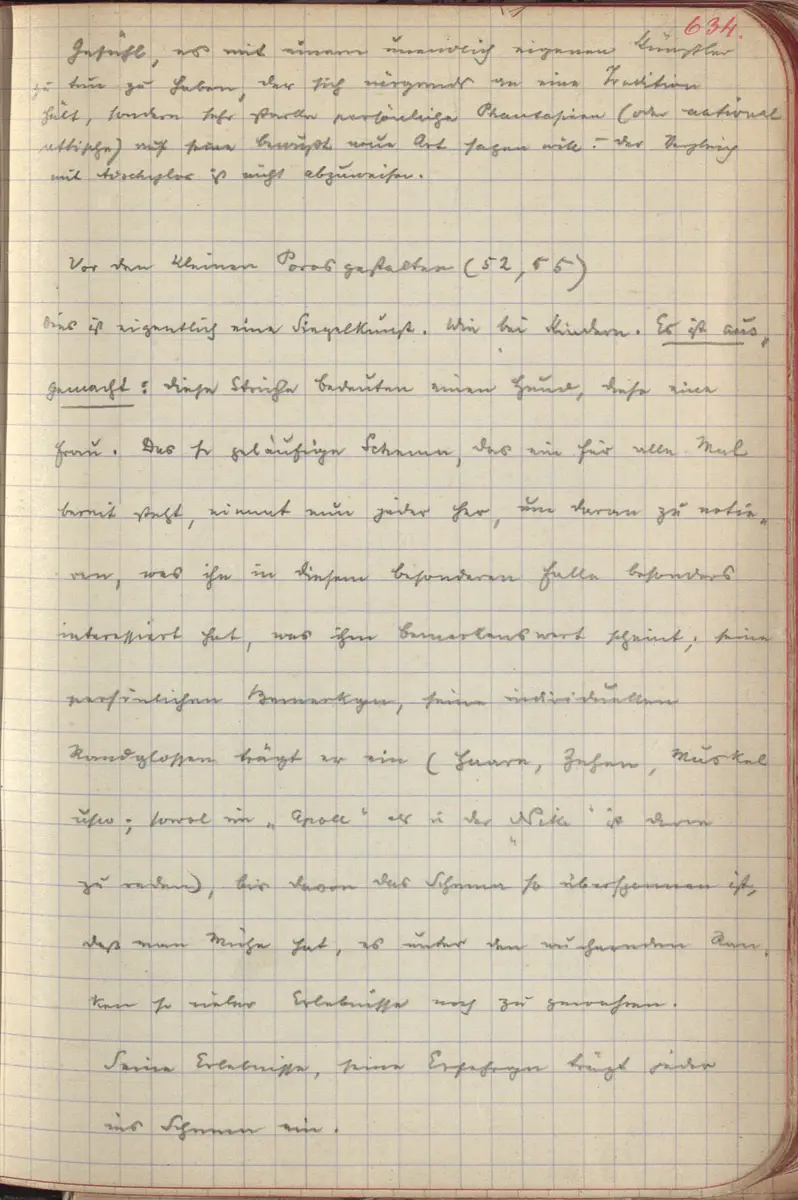 634.
Gefühl, es mit einem unendlich eigenen Künstler
zu tun zu haben, der sich nirgends an eine Tradition
hält, sondern sehr starke persönliche Phantasien (oder national
attische) auf seine bewußt neue Art sagen will – der Vergleich
mit Aischylos ist nicht abzuweisen.
Vor den kleinen Porosgestalten (52, 55)
dies ist eigentlich eine Siegelkunst. Wie bei Kindern. Es ist aus„
gemacht: diese Striche bedeuten einen Hund, diese eine
Frau. Das so geläufige Schema, das ein für alle Mal
bereit steht, nimmt nun jeder her, um daran zu notie„
ren, was ihn in diesem besonderen Falle besonders
interessiert hat, was ihm bemerkenswert scheint; seine
persönlichen Bemerkgn, seine individuellen
Randglossen trägt er ein (Haare, Zehen, Muskel
usw; sowol im „Apoll“ als in der „Nike“ ist davon
zu reden), bis davon das Schema so übersponnen ist,
daß man Mühe hat, es unter den wuchernden Ran„
ken so vieler Erlebnisse noch zu gewahren.
Seine Erlebnisse, seine Erfahrgn trägt jeder
ins Schema ein.